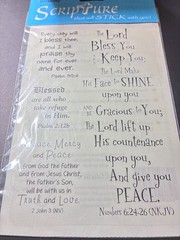 SCRIPTURE
that will STICK with you!
Every day will
I bless thee;
and I will
praise thy
name for ever
and ever.
Psalms 145:2
Blessed
are all who
take refuge
in Him.
Psalm 2:12b
Grace, Mercy
and Peace
from God the Father
and from Jesus Christ,
the Father's Son,
will be with us in
Truth and Love
2 John 3 (NIV)
The Lord
Bless You
and Keep You;
The Lord Make
His Face to SHINE
upon you
AND Be Gracious to You;
The Lord lift up
His countenance
upon you,
And give you
PEACE.
Numbers 6:24-26 (NKJV)